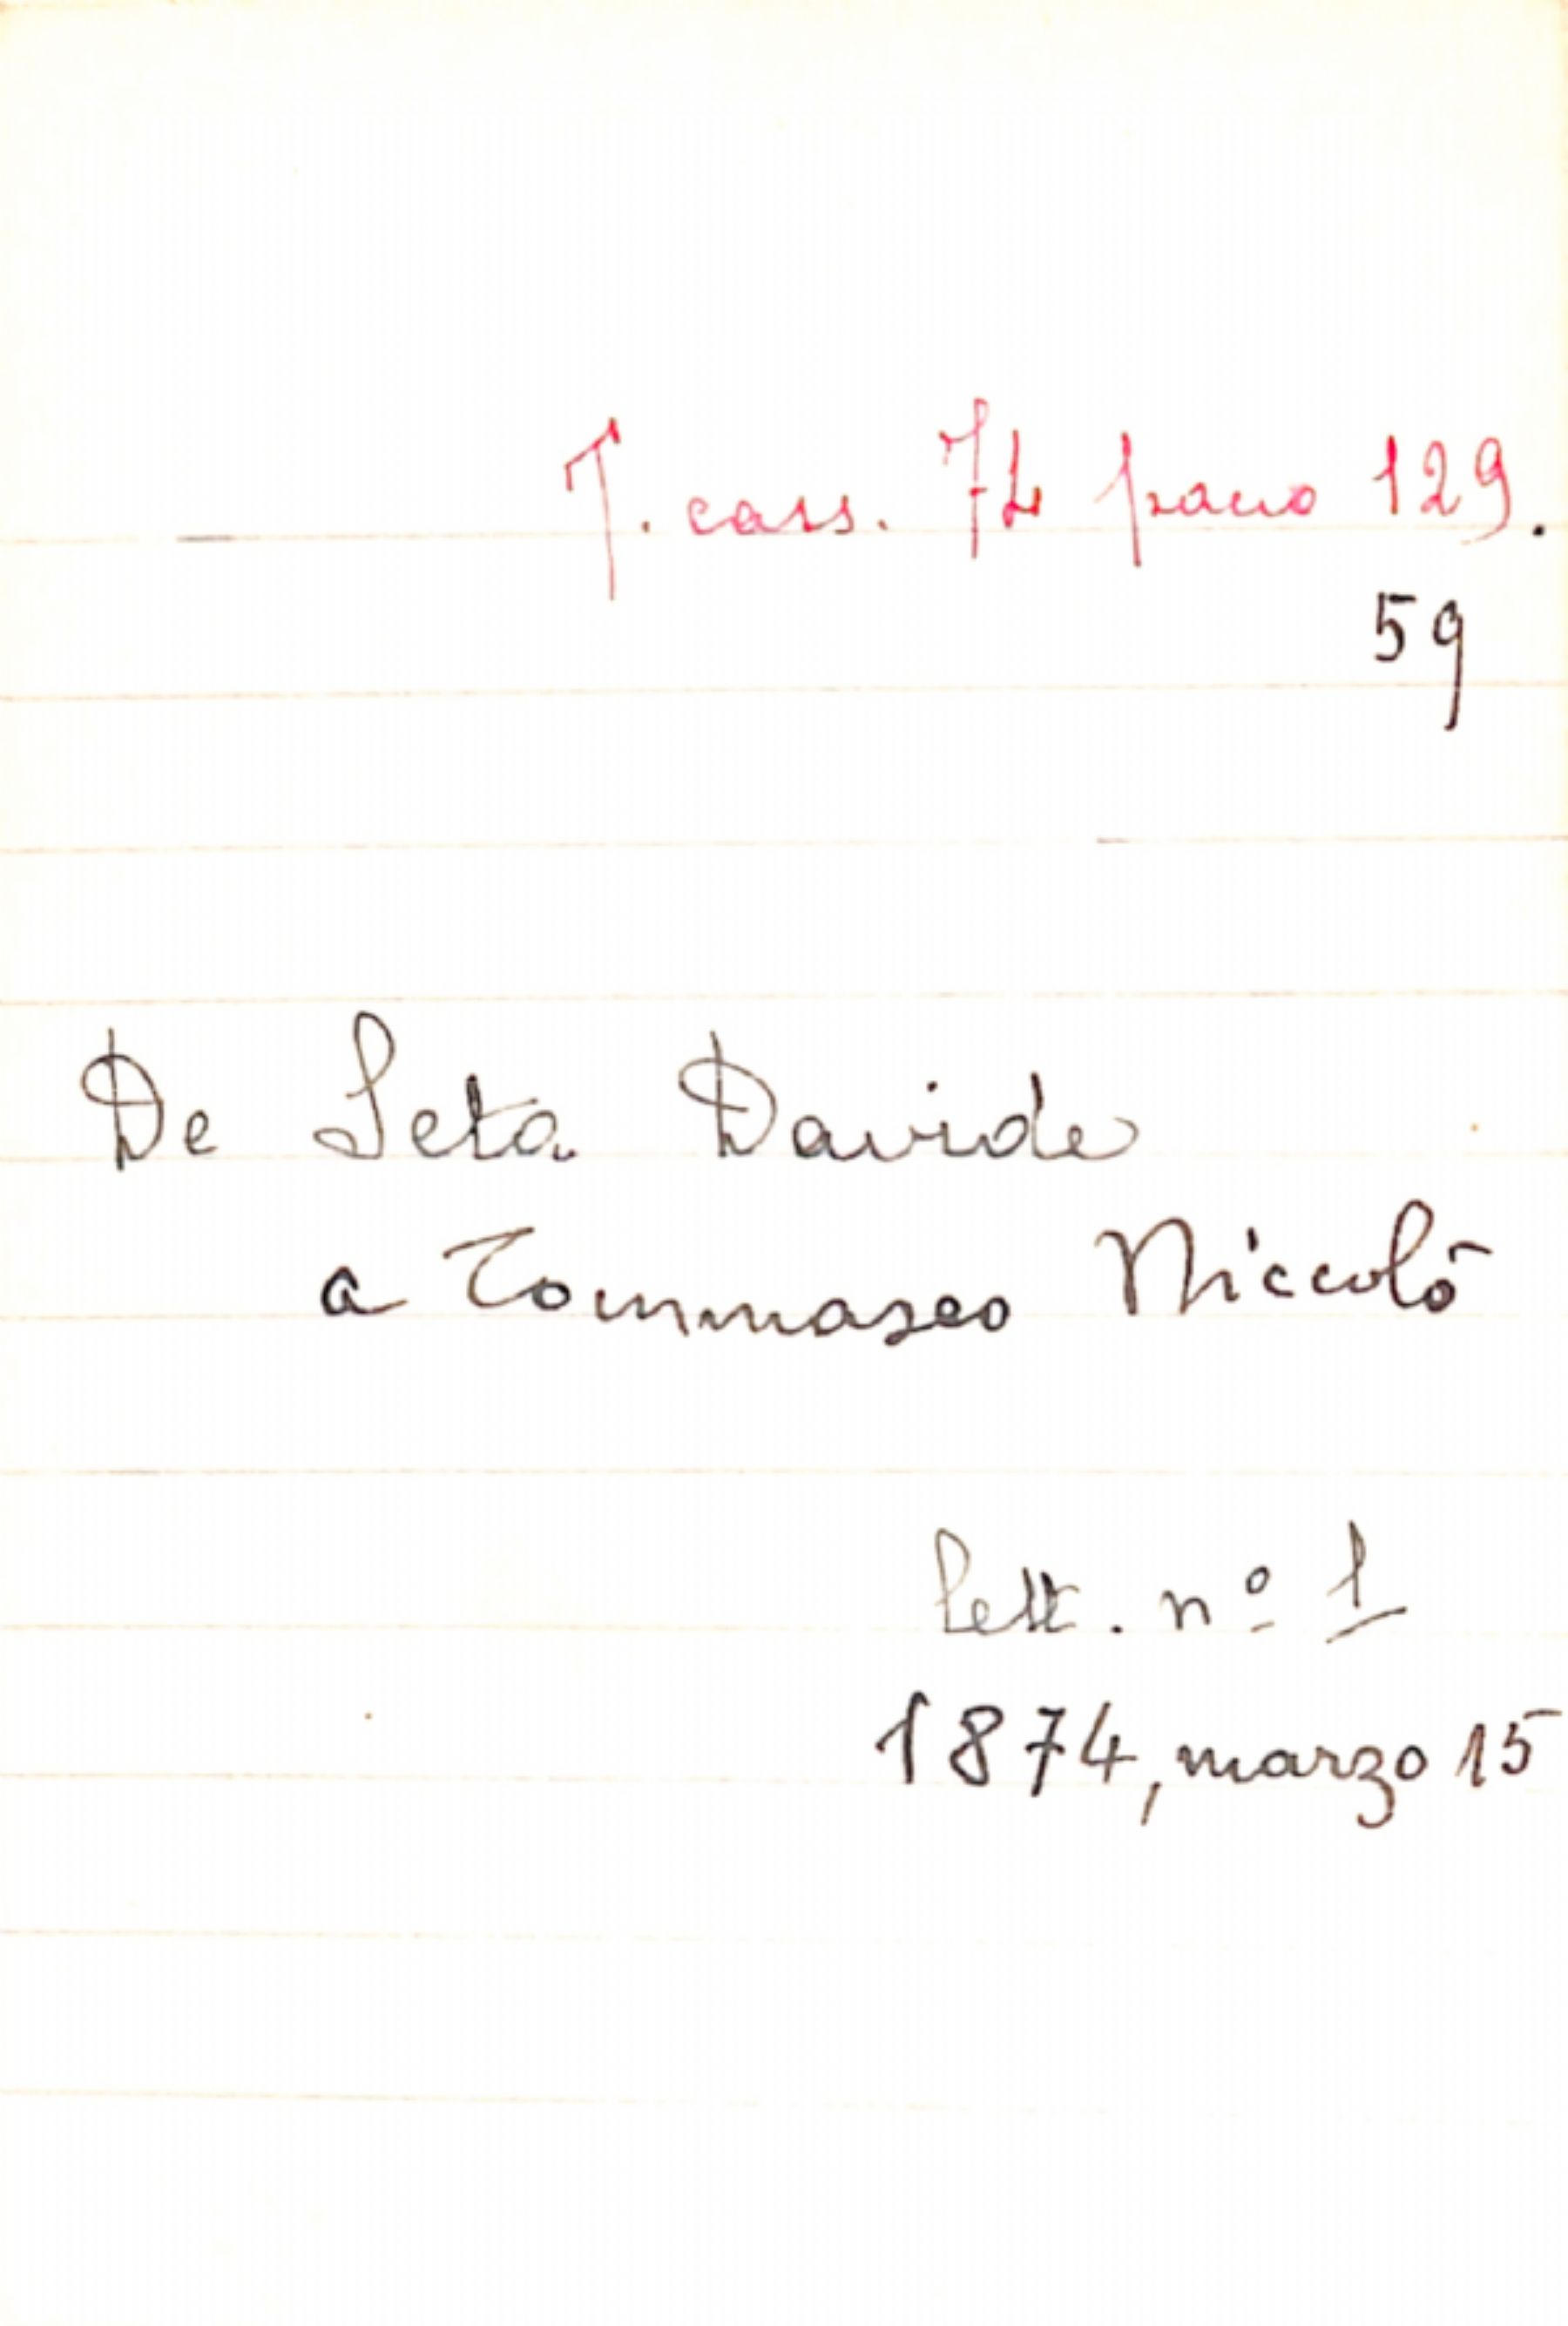 T. cass. 74 pacco 129.
59
De Seta Davide
a Tommaseo Niccolò
lett. nº 1
1874, marzo 15